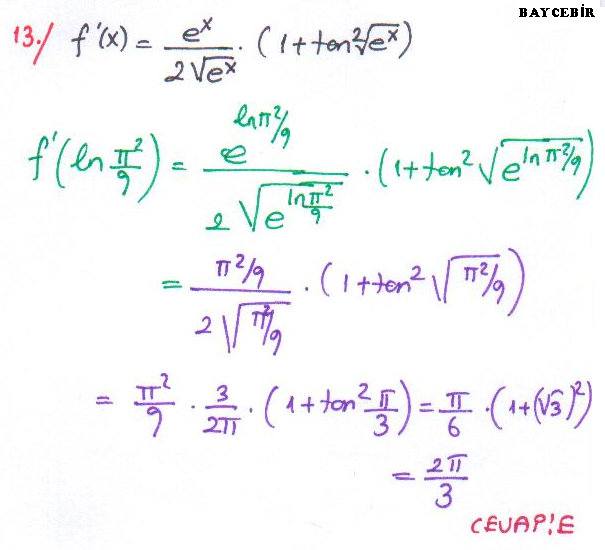 BAYCEBİR
13./ f'(x) = e^x / 2√e^x · (1 + tan²√e^x)
f'(ln π²/9) = e^(ln π²/9) / 2√e^(ln π²/9) · (1 + tan² √e^(ln π²/9))
= π²/9 / 2√π²/9 · (1 + tan² √π²/9)
= π²/9 · 3/2π · (1 + tan² π/3) = π/6 · (1 + (√3)²)
= 2π/3
CEVAP:E